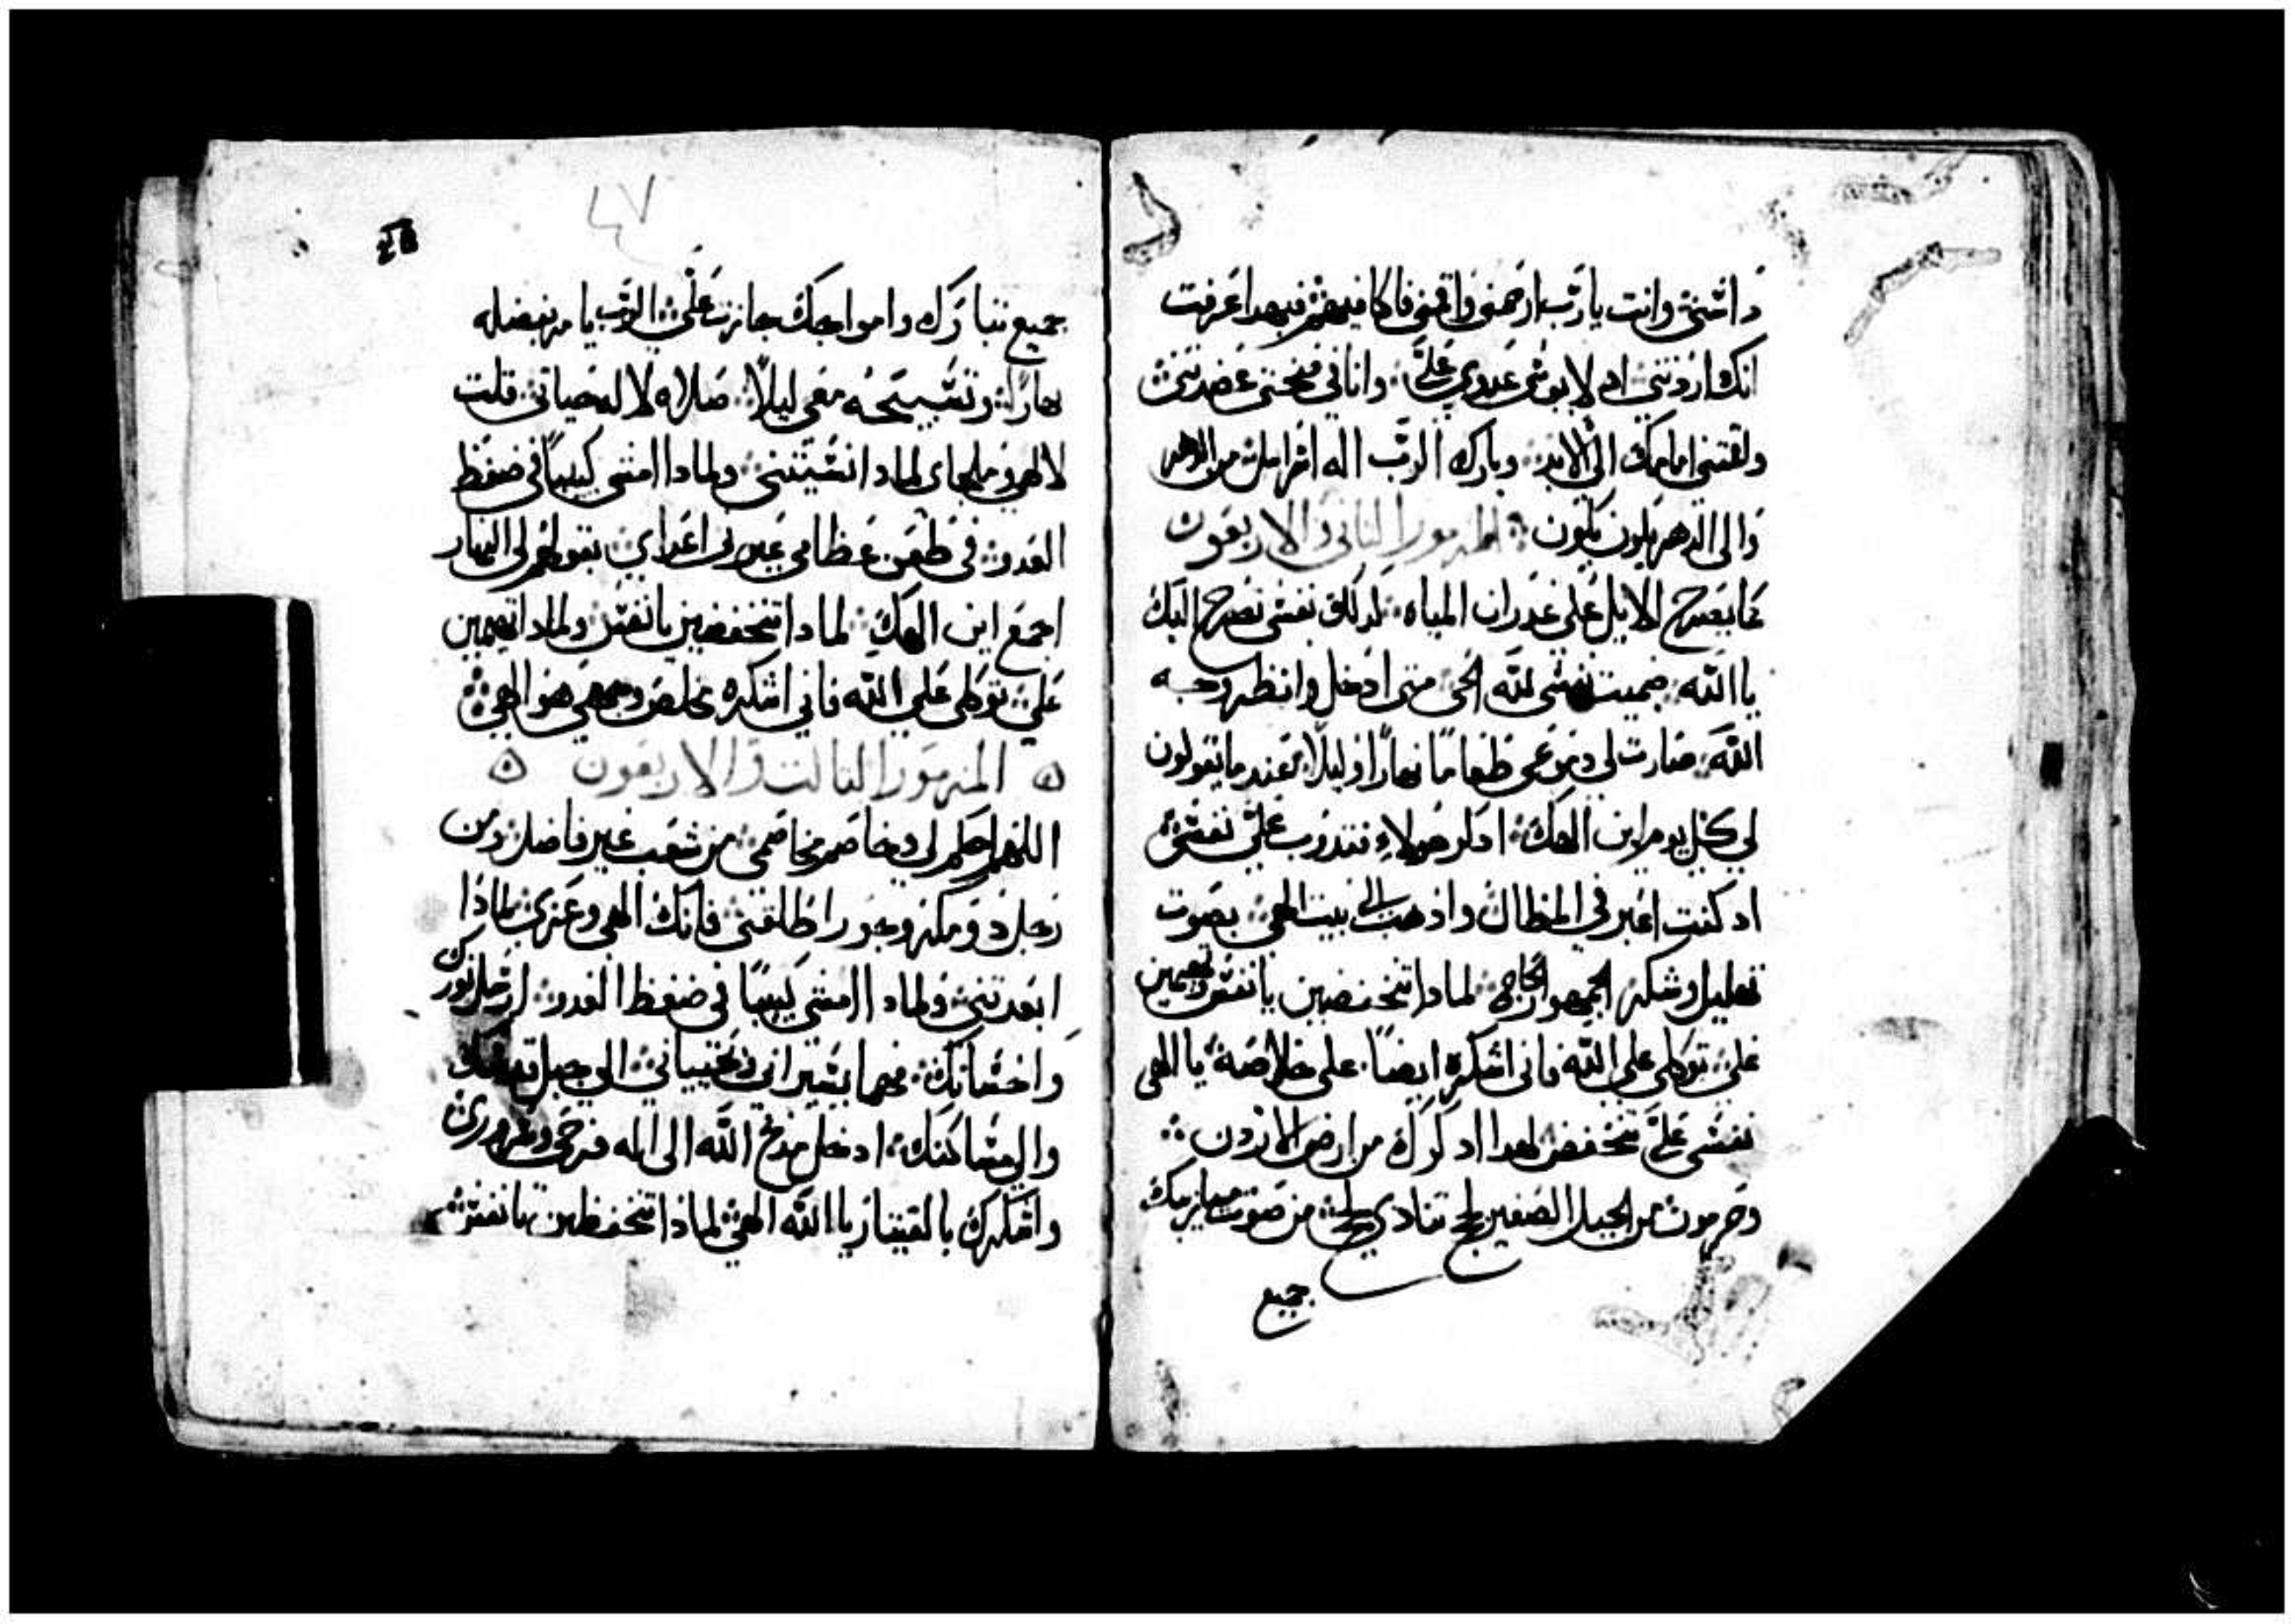 وانت يارب ارحمني واقمني فاكافيهم فبهدا عرفت
انك اردتني اد لا يوشي عدوي علي وانا في صحتي عضدتني
وثقتني امامك الي الابد وبارك الرب اله اسرايل من الدهر
والي الدهر يكون يكون المزمور الثاني والاربعون
كما يصرخ الايل علي غدران المياه كدلك نفسي تصرخ اليك
يا الله ضميت نفسي لله الحي متي ادخل وانظر وجه
الله صارت لي دموعي طعاما نهارا وليلا عندما يقولون
لي كل يوم اين الهك ادكر هولاء فتدوب علي نفسي
اد كنت اعبر في المظال وادهب الي بيت الهي بصوت
تهليل وشكر لماداتنخفضين يا نفس وتهمين
علي توكلي علي الله فاني اشكره ايضا علي خلاصه يا الهي
نفسي علي تنخفض لهدا ادكرك من ارض الاردن
وحرمون من الجبل الصغير لج تنادي لج من صوت ميازيبك
جميع
٤٧
جميع تيارك وامواجك جازت علي الرب يامر بفضله
نهارا وتسبيحه معي ليلا صلاه لاله حياتي قلت
لالهي ملجاي لمادا نسيتني ولمادا امشي كييبا في ضغط
العدو في طعن عظامي عيروني اعداي بقولهم لي النهار
اجمع اين الهك لمادا تنخفضين يا نفس ولمادا تهمين
علي توكلي علي الله فاني اشكره مخلص وجهي هو الهي
المزمور الثالث والاربعون
اللهم احكم لي وخاصم مخاصمي من شعب غير فاضل ومن
رجل دو مكر وجور اطلقني فانك الهي وعزي لمادا
ابعدتني ولمادا امشي كييبا في ضغط العدو ارسل نورك
واحسانك فهما يسيراني ويجيياني الي جبل قدسك
والي مساكنك ادخل مدبح الله الي اله فرحي وسروري
واشكرك بالقيثار يا الله الهي لماذا تنخفظين يا نفس